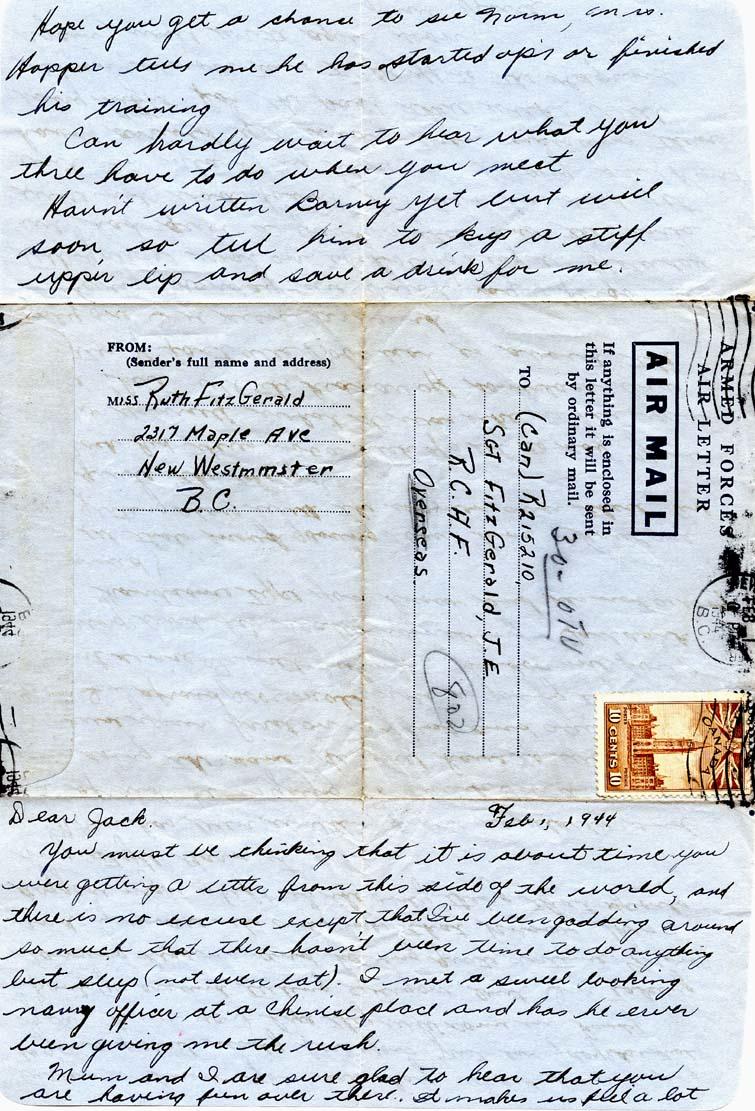 Hope you get a chance to see Norm, Mrs.
Hopper tells me he has started op's or finished
his training
Can hardly wait to hear what you
three have to do when you meet
Havn't written Barney yet but will
soon so tell him to keep a stiff
upper lip and save a drink for me.
FROM:
(Sender's full name and address)
MISS Ruth FitzGerald
2317 Maple Ave
New Westminster
B.C.
ARMED FORCES
AIR LETTER
AIR MAIL
If anything is enclosed in
this letter it will be sent
by ordinary mail.
30-OTU
TO (Can) R215210
Sgt FitzGerald, J.E
R.C.A.F.
Overseas
802
CANADA
10 CENTS 10
FEB 1
1944
B.C.
Dear Jack. Feb 1, 1944
You must be thinking that it is about time you
were getting a letter from this side of the world, and
there is no excuse except that I've been gadding around
so much that there hasn't been time to do anything
but sleep (not even eat). I met a sweet looking
navy officer at a Chinese place and has he ever
been giving me the rush.
Mum and I are sure glad to hear that you
are having fun over there. It makes us feel a lot